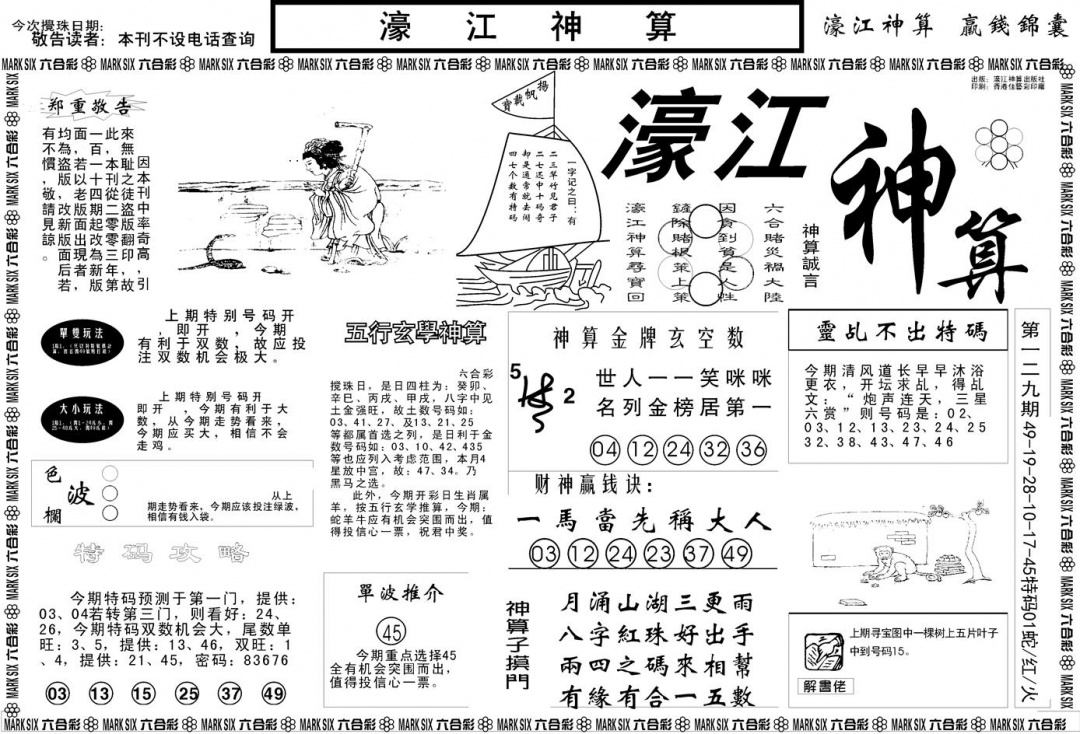 今次攪珠日期:
敬告读者：本刊不设电话查询
濠江神算
濠江神算 贏錢錦囊
MARK SIX 六合彩 MARK SIX 六合彩 MARK SIX 六合彩 MARK SIX 六合彩 MARK SIX 六合彩 MARK SIX 六合彩 MARK SIX 六合彩 MARK SIX 六合彩 MARK SIX 六合彩 MARK SIX 六合彩 MARK SIX 六合彩
出版：濠江神算出版社
印刷：香港佳藝彩印廠
郑重敬告
因本刊中率奇高，引
來無恥之徒盜版翻印，故
此，本刊從二零零三年第
一百一十四期起改為新版
面，若以老版面出現者，
均為盜版，敬請見諒。后若
有不慣
揚帆載寶
一字记之曰：有
二三草竹见君子
二七还中十码奇
却是通常就去闹
四七个数有特码
濠江
神算
六合賭災禍大陸
因貪到貧是人性
鏟除賭根策上策
濠江神算尋寶回
神算誠言
單雙玩法
上期特别号码开
，即开 ，今期
有利于双数，故应投
注双数机会极大。
大小玩法
上期特别号码开
即开 ，今期有利于大
数，从今期走势看来，
今期应买大，相信不会
走鸡。
色波欄
从上
期走势看来，今期应该投注绿波，
相信有钱入袋。
特码攻略
今期特码预测于第一门，提供：
03、04若转第三门，则看好：24、
26，今期特码双数机会大，尾数单
旺：3、5，提供：13、46，双旺：1
、4，提供：21、45，密码：83676
03 13 15 25 37 49
五行玄學神算
六合彩
搅珠日，是日四柱为：癸卯、
辛巳、丙戌、甲戌，八字中见
土金强旺，故土数号码如：
03、41、27、及13、21、25
等都属首选之列，是日利于金
数号码如：03、10、42、435
等也应列入考虑范围，本月4
星放中宫，故：47、34。乃
黑马之选。
此外，今期开彩日生肖属
羊，按五行玄学推算，今期：
蛇羊牛应有机会突围而出，值
得投信心一票，祝君中奖。
單波推介
45
今期重点选择45
全有机会突围而出，
值得投信心一票。
神算金牌玄空数
5
2
世人一一笑咪咪
名列金榜居第一
04 12 24 32 36
财神赢钱诀：
一馬當先稱大人
03 12 24 23 37 49
神算子摸門
月涌山湖三更雨
八字紅珠好出手
兩四之碼來相幫
有緣有合一五數
靈乩不出特碼
今期清风道长早早沐浴
更衣，开坛求乩，得乩
文＂炮声连天，三星
六赏＂则号码是：02、
03、12、13、23、24、25
32、38、43、47、46
上期寻宝图中一棵树上五片叶子
中到号码15。
解畫佬
第一二九期49-19-28-10-17-45特码01蛇/红/火
MARK SIX 六合彩 MARK SIX 六合彩 MARK SIX 六合彩 MARK SIX 六合彩 MARK SIX 六合彩 MARK SIX 六合彩 MARK SIX 六合彩 MARK SIX 六合彩 MARK SIX 六合彩 MARK SIX 六合彩 MARK SIX 六合彩